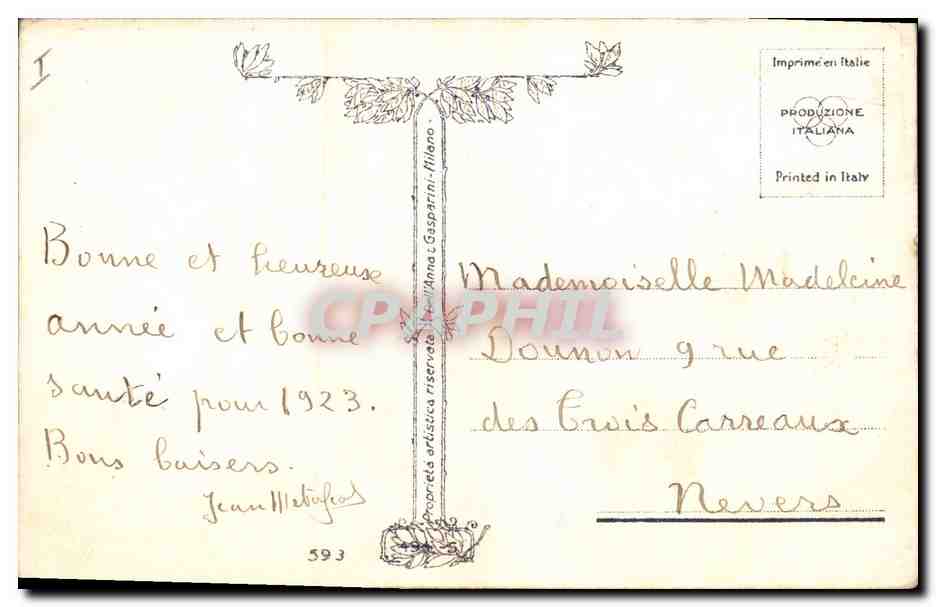 I
Imprimé en Italie
PRODUZIONE
ITALIANA
Printed in Italy
Proprietà artistica riservata Anna & Gasparini-Milano.
Bonne et heureuse
année et bonne
santé pour 1923.
Bons baisers.
Jean
Mademoiselle Madeleine
Dounon 9 rue
des Trois Carreaux
Nevers
593
CPAPHIL